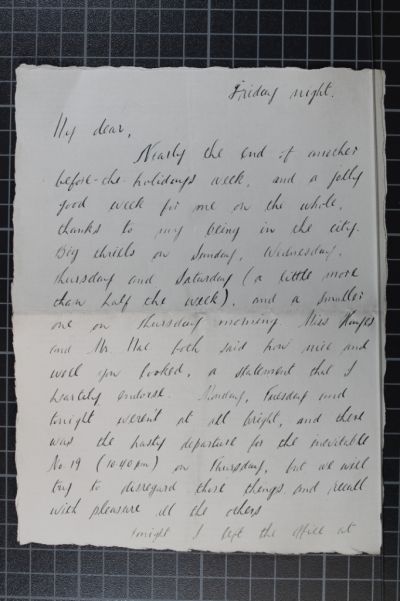 Friday night.
My dear,
Nearly the end of another
before-the-holidays week, and a jolly
good week for me on the whole,
thanks to my being in the city.
Big thrills on Sunday, Wednesday,
Thursday and Saturday (a little more
than half the week), and a smaller
one on Thursday morning. Miss
and Mr. Mac both said how nice and
well you looked, a statement that I
heartily endorse. Monday, Tuesday and
tonight weren't at all bright, and there
was the hasty departure for the inevitable
No. 19 (10.40pm) on Thursday, but we will
try to disregard those things and recall
with pleasure all the others
Tonight I left the office at